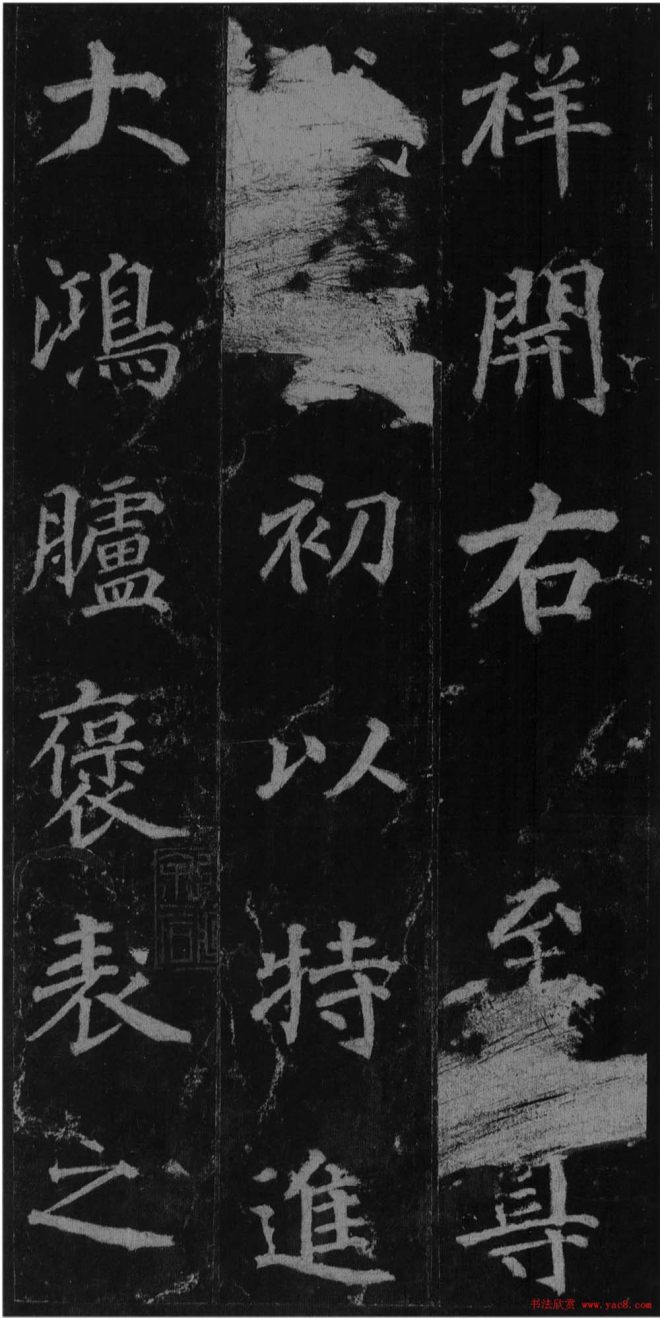 祥開右至
初以特進
大鴻臚褒表之
书法欣赏 www.yac8.com